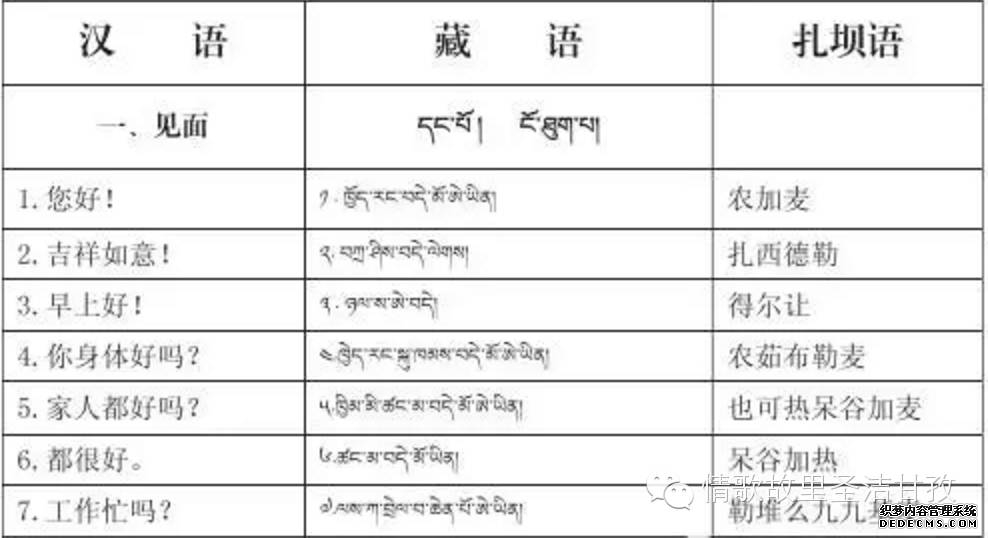 汉 语 藏 语 扎坝语
一、见面 དང་པོ། ངོ་ཐུག་པ།
1.您好! ༡.ཁྱོད་རང་བདེ་མོ་ཨེ་ཡིན། 农加麦
2.吉祥如意! ༢.བཀྲ་ཤིས་བདེ་ལེགས། 扎西德勒
3.早上好! ༣.ཉལ་ས་ཨེ་བདེ། 得尔让
4.你身体好吗? ༤.ཁྱེད་རང་སྐུ་ཁམས་བདེ་མོ་ཨེ་ཡིན། 农茹布勒麦
5.家人都好吗? ༥.ཁྱིམ་མི་ཚང་མ་བདེ་མོ་ཨེ་ཡིན། 也可热呆谷加麦
6.都很好。 ༦.ཚང་མ་བདེ་མོ་ཡིན། 呆谷加热
7.工作忙吗? ༧.ལས་ཀ་བྲེལ་བ་ཆེན་པོ་ཨེ་ཡིན། 勒堆么九九
情歌故里圣洁甘孜
织梦内容管理系统
DEDECMS.COM